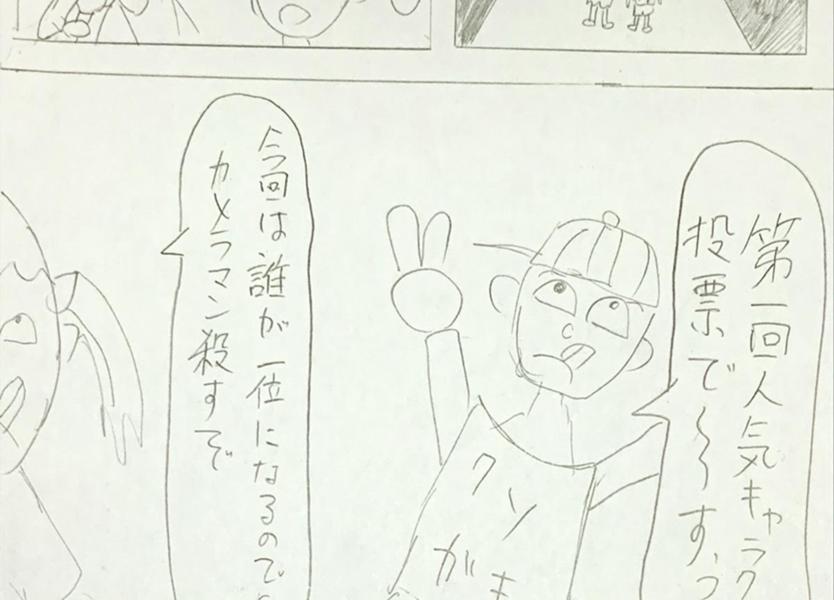 第一回人気キャラク
投票で～～すっ
今回は誰が一位になるので
カメラマン殺すぞ
クソ
がキ